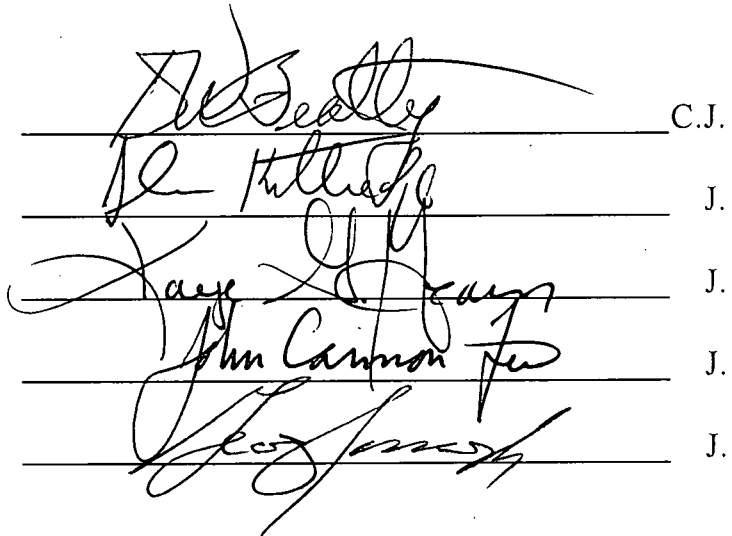 DWBeatty C.J.
John Kittredge J.
Kaye G. Hearn J.
John Cannon Few J.
Geo James Jr J.